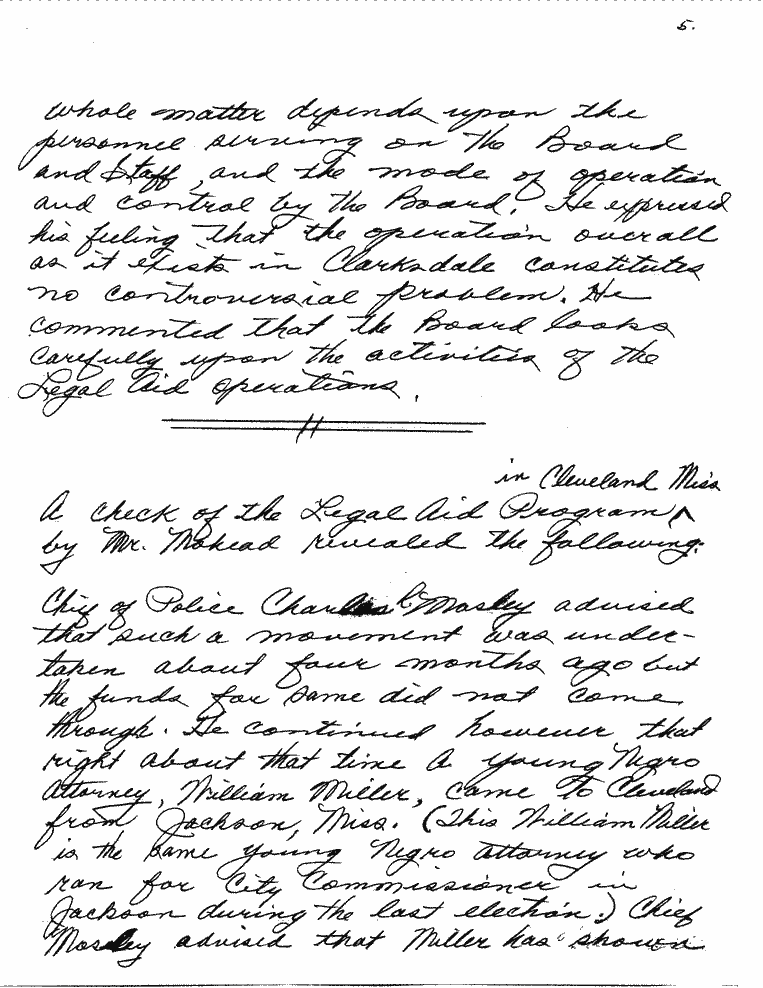 5.
whole matter depends upon the
personnel serving on the Board
and Staff, and the mode of operation
and control by the Board. He expressed
his feeling that the operation overall
as it exists in Clarksdale constitutes
no controversial problem. He
commented that the Board looks
carefully upon the activities of the
Legal Aid operations.
in Cleveland Miss
A check of the Legal Aid Program ^
by Mr. Mohead revealed the following:
Chief of Police Charles Mosley advised
that such a movement was under-
taken about four months ago but
the funds for same did not come
through. He continued however that
right about that time a young Negro
Attorney, William Miller, came to Cleveland
from Jackson, Miss. (This William Miller
is the same young Negro attorney who
ran for City Commissioner in
Jackson during the last election.) Chief
Mosley advised that Miller has shown